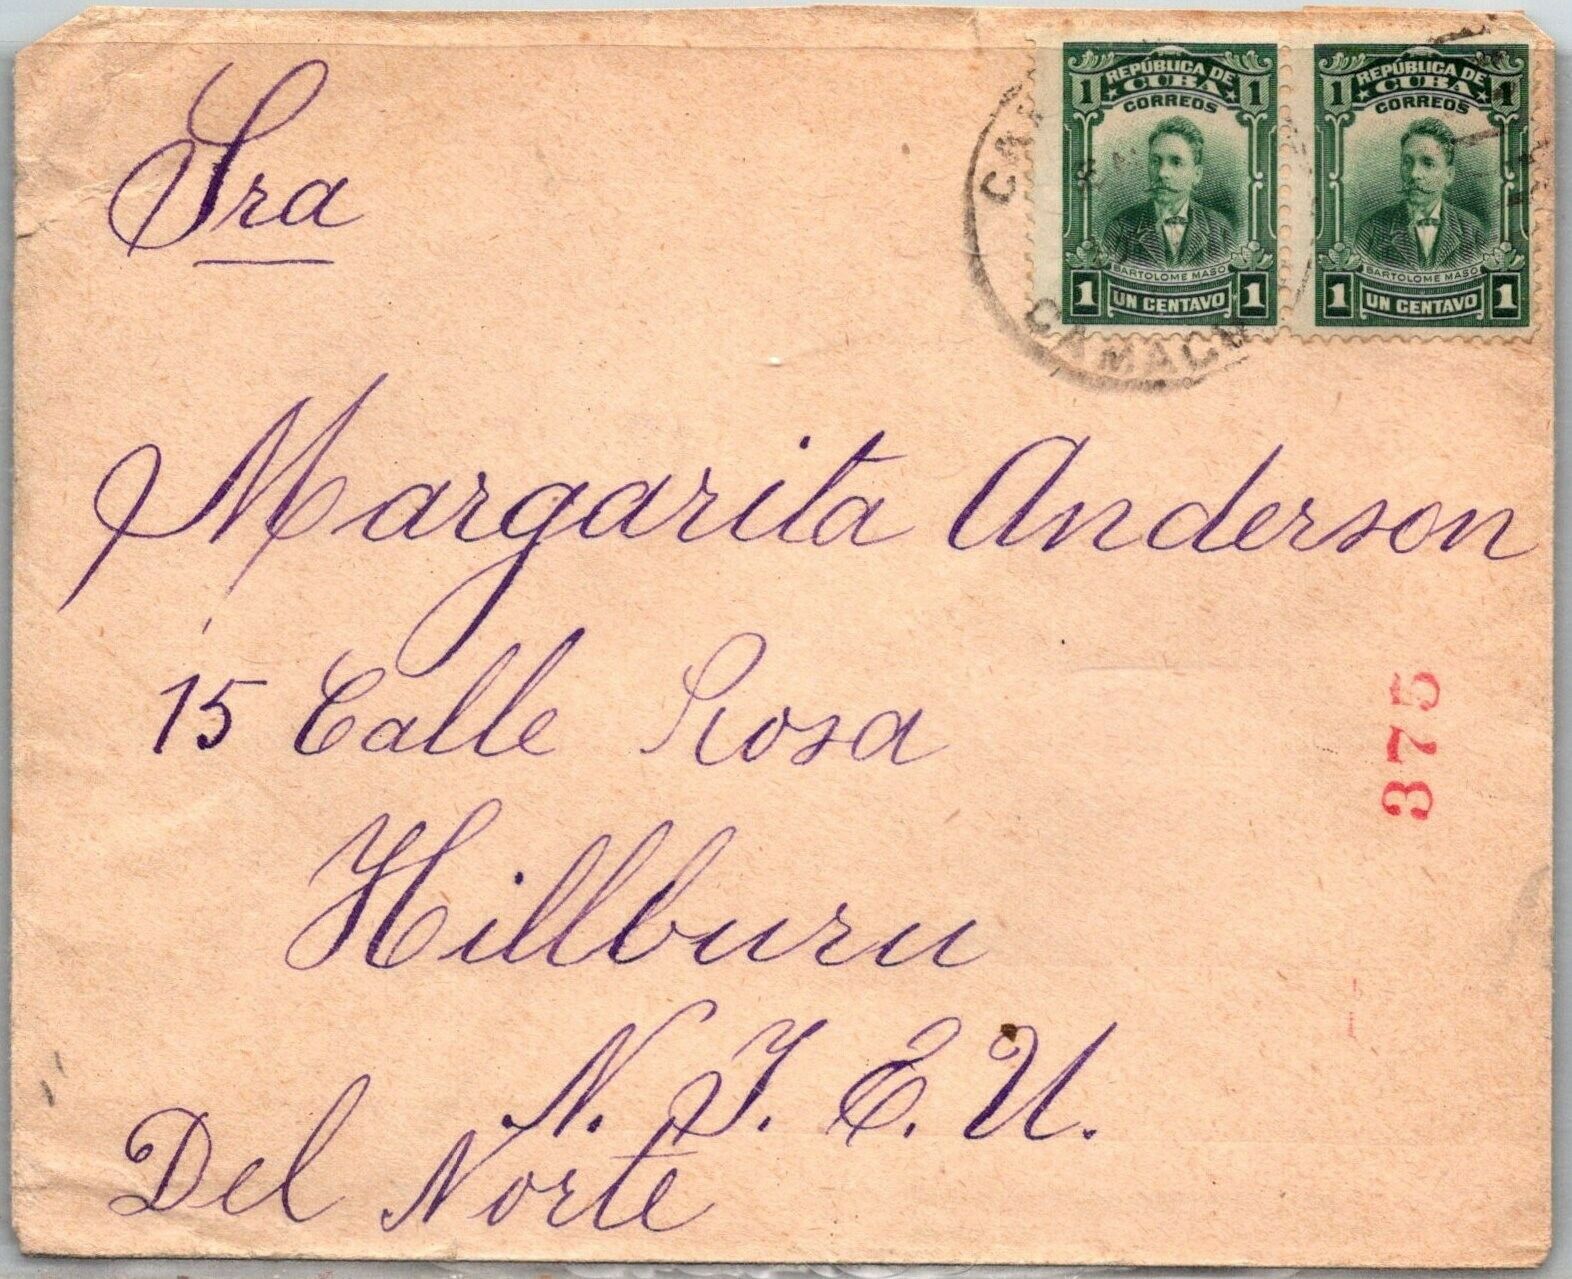 Sra
REPÚBLICA DE
CUBA
CORREOS
1 1
BARTOLOME MASO
1 UN CENTAVO 1
REPÚBLICA DE
CUBA
CORREOS
1 1
BARTOLOME MASO
1 UN CENTAVO 1
Margarita Anderson
15 Calle Rosa
375
Hillburu
N. J. E. U.
Del Norte